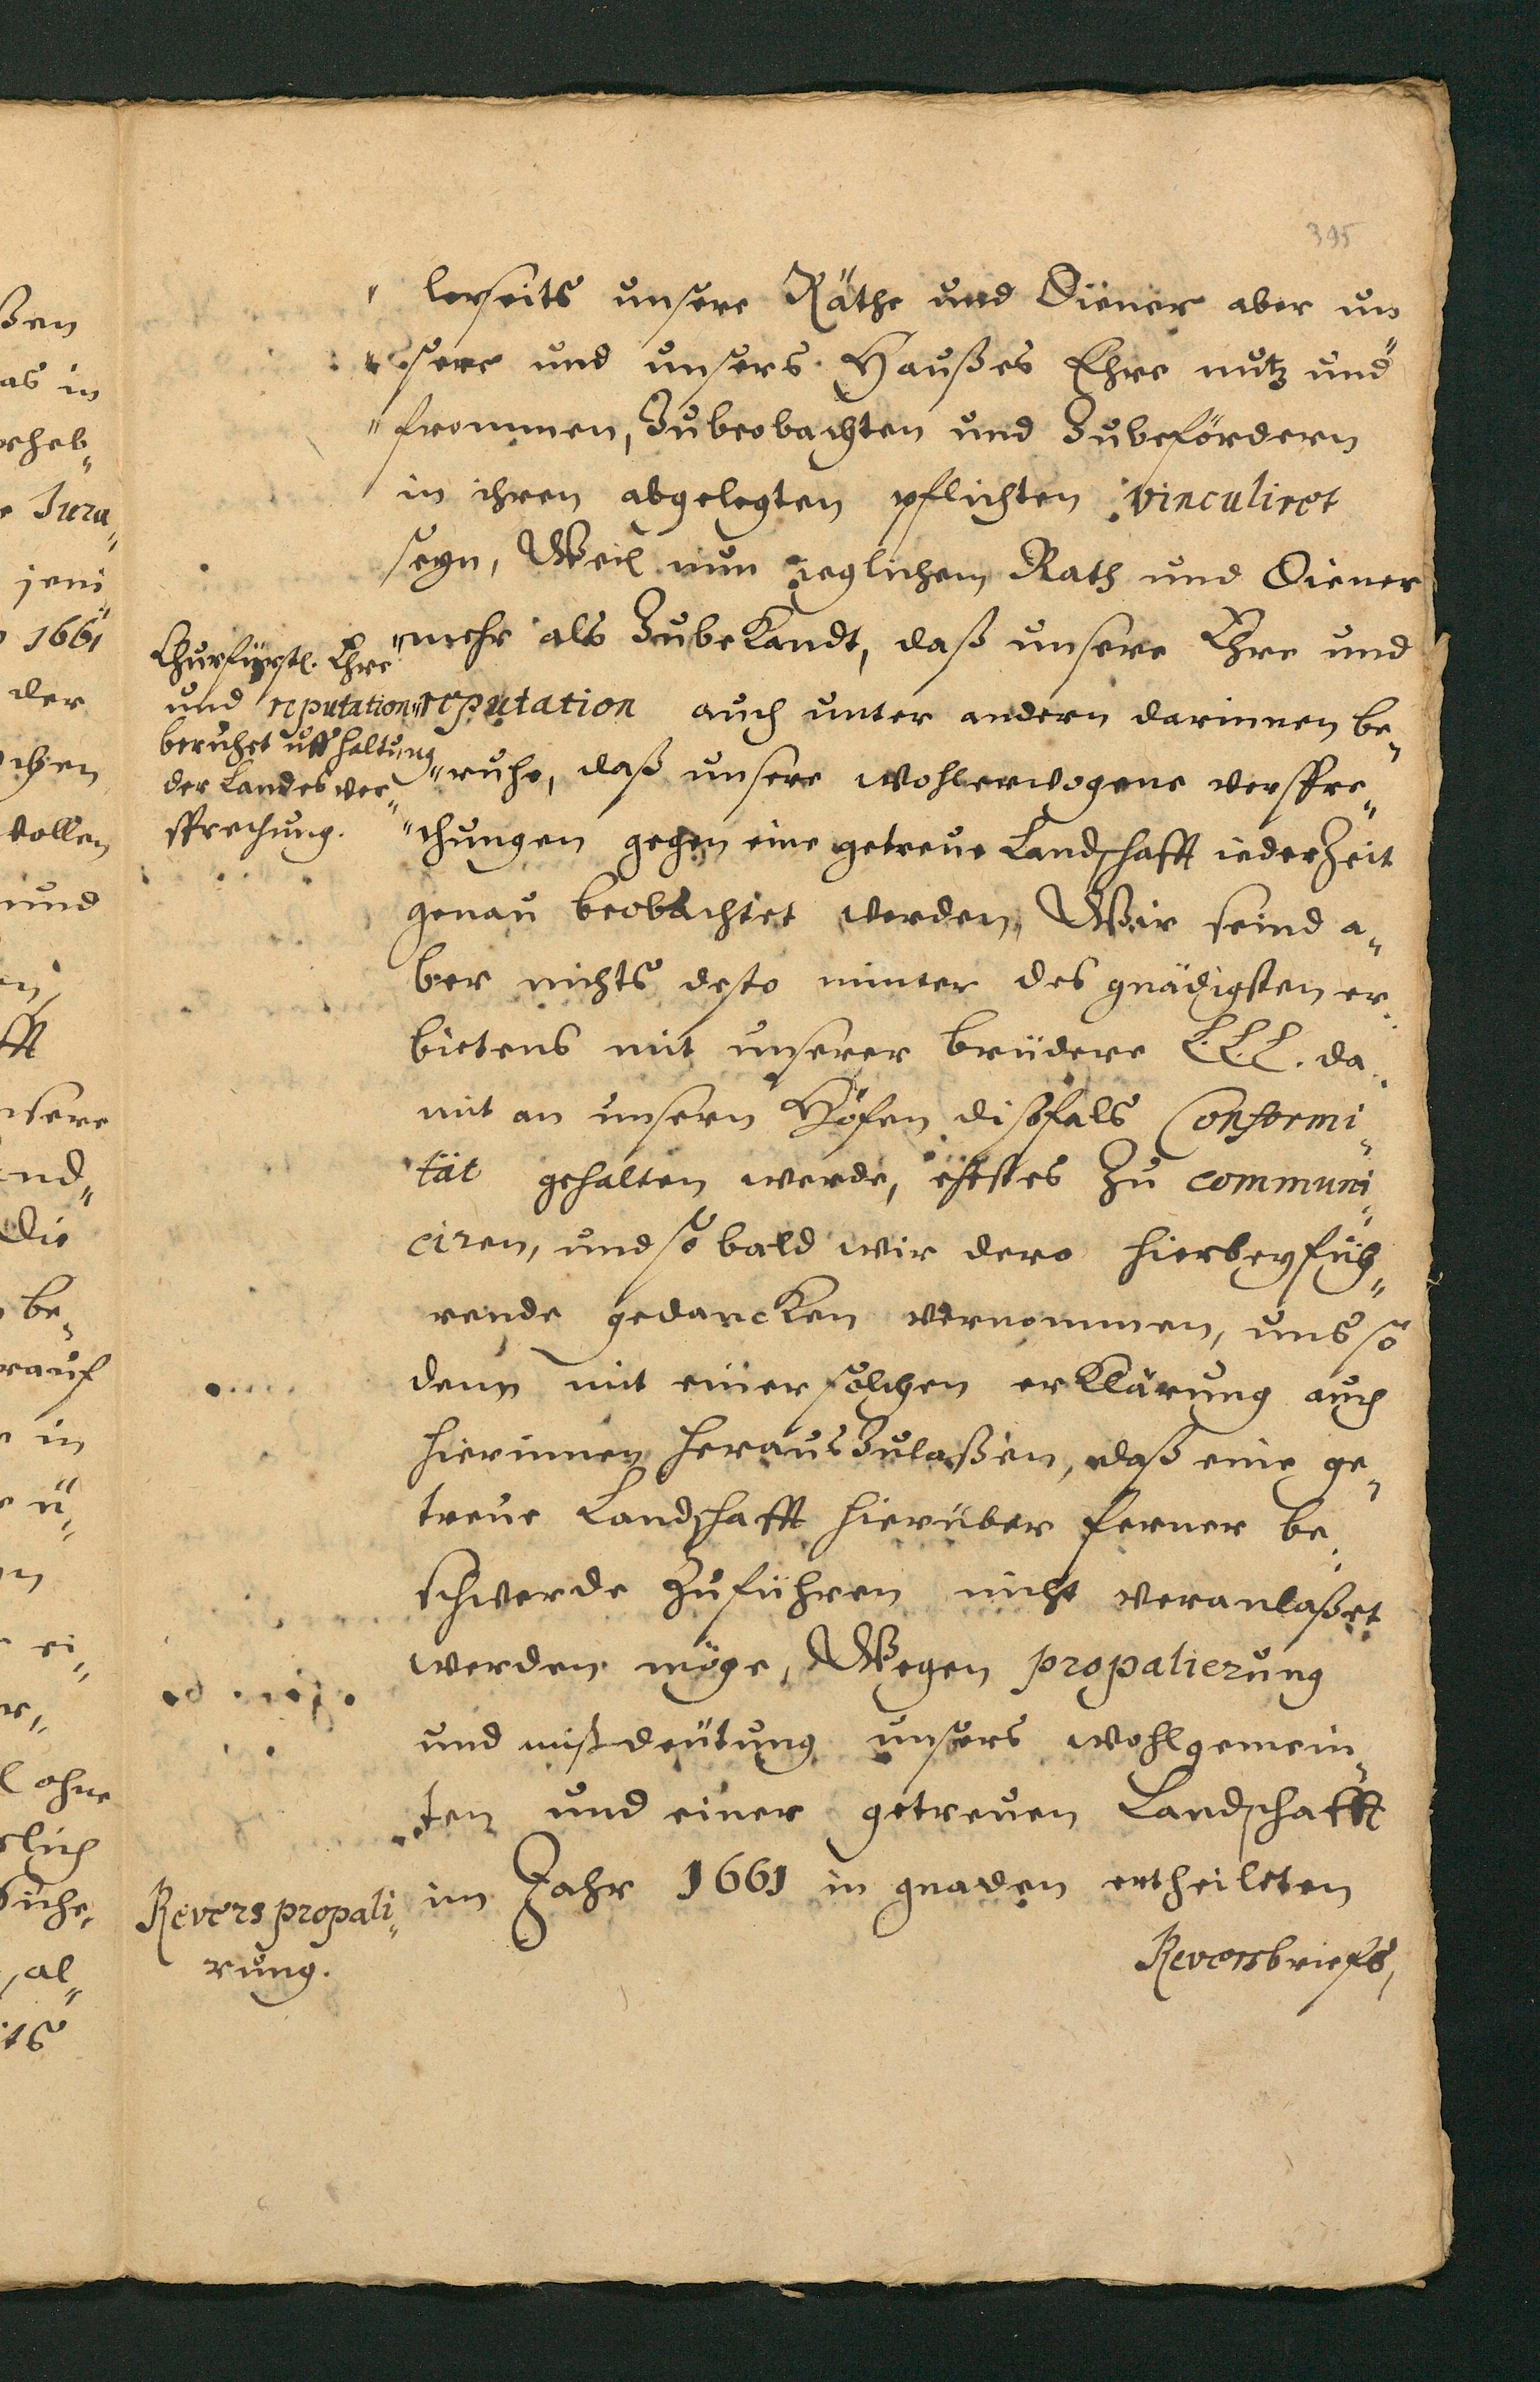 395
" lerseits unsere Räthe und Diener aber un
" sere und unsers Haußes Ehre nutz und
" frommen, Zubeobachten und Zubefördern
in ihren abgelegten pflichten vinculiret
seyn, Weil nun ieglichem Rath und Diener
" mehr als Zubekandt, daß unsere Ehre und
" reputation auch unter andern darinnen be„
" ruhe, daß unsere wohlerwogene verspre„
" chungen gegen eine getreue Landschafft iederZeit
genau beobachtet werden, Wir seind a„
ber nichts desto minter des gnädigsten er„
bietens mit unserer brüdere L. L. L. da„
mit an unsern Höfen dißfals Conformi„
tät gehalten werde, ehestes Zu communi„
ciren, und so bald wir dero hierbeyfüh„
rende gedancken vernommen, uns so
denn mit einer solchen erklärung auch
hierinnen herausZulaßen, daß eine ge„
treue Landschafft hierüber ferner be„
schwerde Zuführen nicht veranlaßet
werden möge, Wegen propalierung
und mißdeütung unsers wohlgemein„
ten und einer getreuen Landschafft
im Jahr 1661 in gnaden ertheileten
Reversbriefs,
Churfürstl. Ehre
und reputation
beruhet uff haltung
der Landes ver„
sprechung.
Revers propali„
rung.
ßen
as in
eheb„
Jura„
jeni„
1661
der
chen
vollen
und
en,
fft
nsere
and„
die
be„
rauf
in
ü„
en
ei„
er„
l ohne
lich
siche„
, al„
its